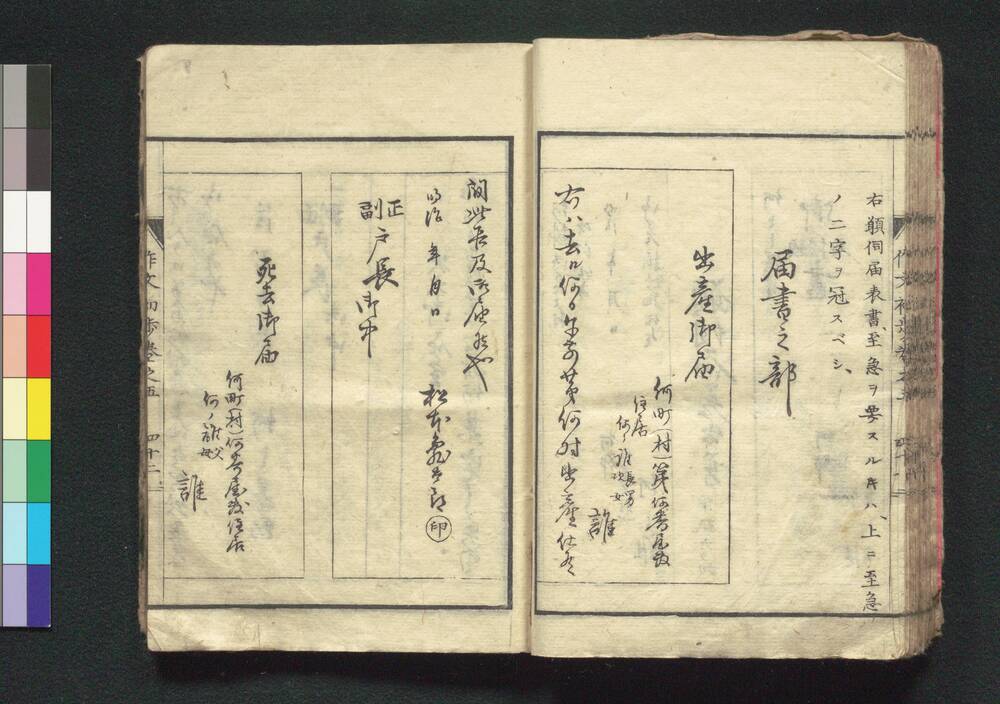 右願伺届表書、至急ヲ要スルキハ、上ニ至急
ノ二字ヲ冠スベシ、
届書之部
出産御届
何町(村)第何番屋敷
住居
何ノ誰長男
次女
誰
右ハ去ル何日午前第何時出産仕候
間此段及御届候也
明治 年 月 日
松本 印
正
副
戸長御中
死去御届
何町(村)何番屋敷住居
何ノ誰父
母
誰
作文初歩巻之五
四十二